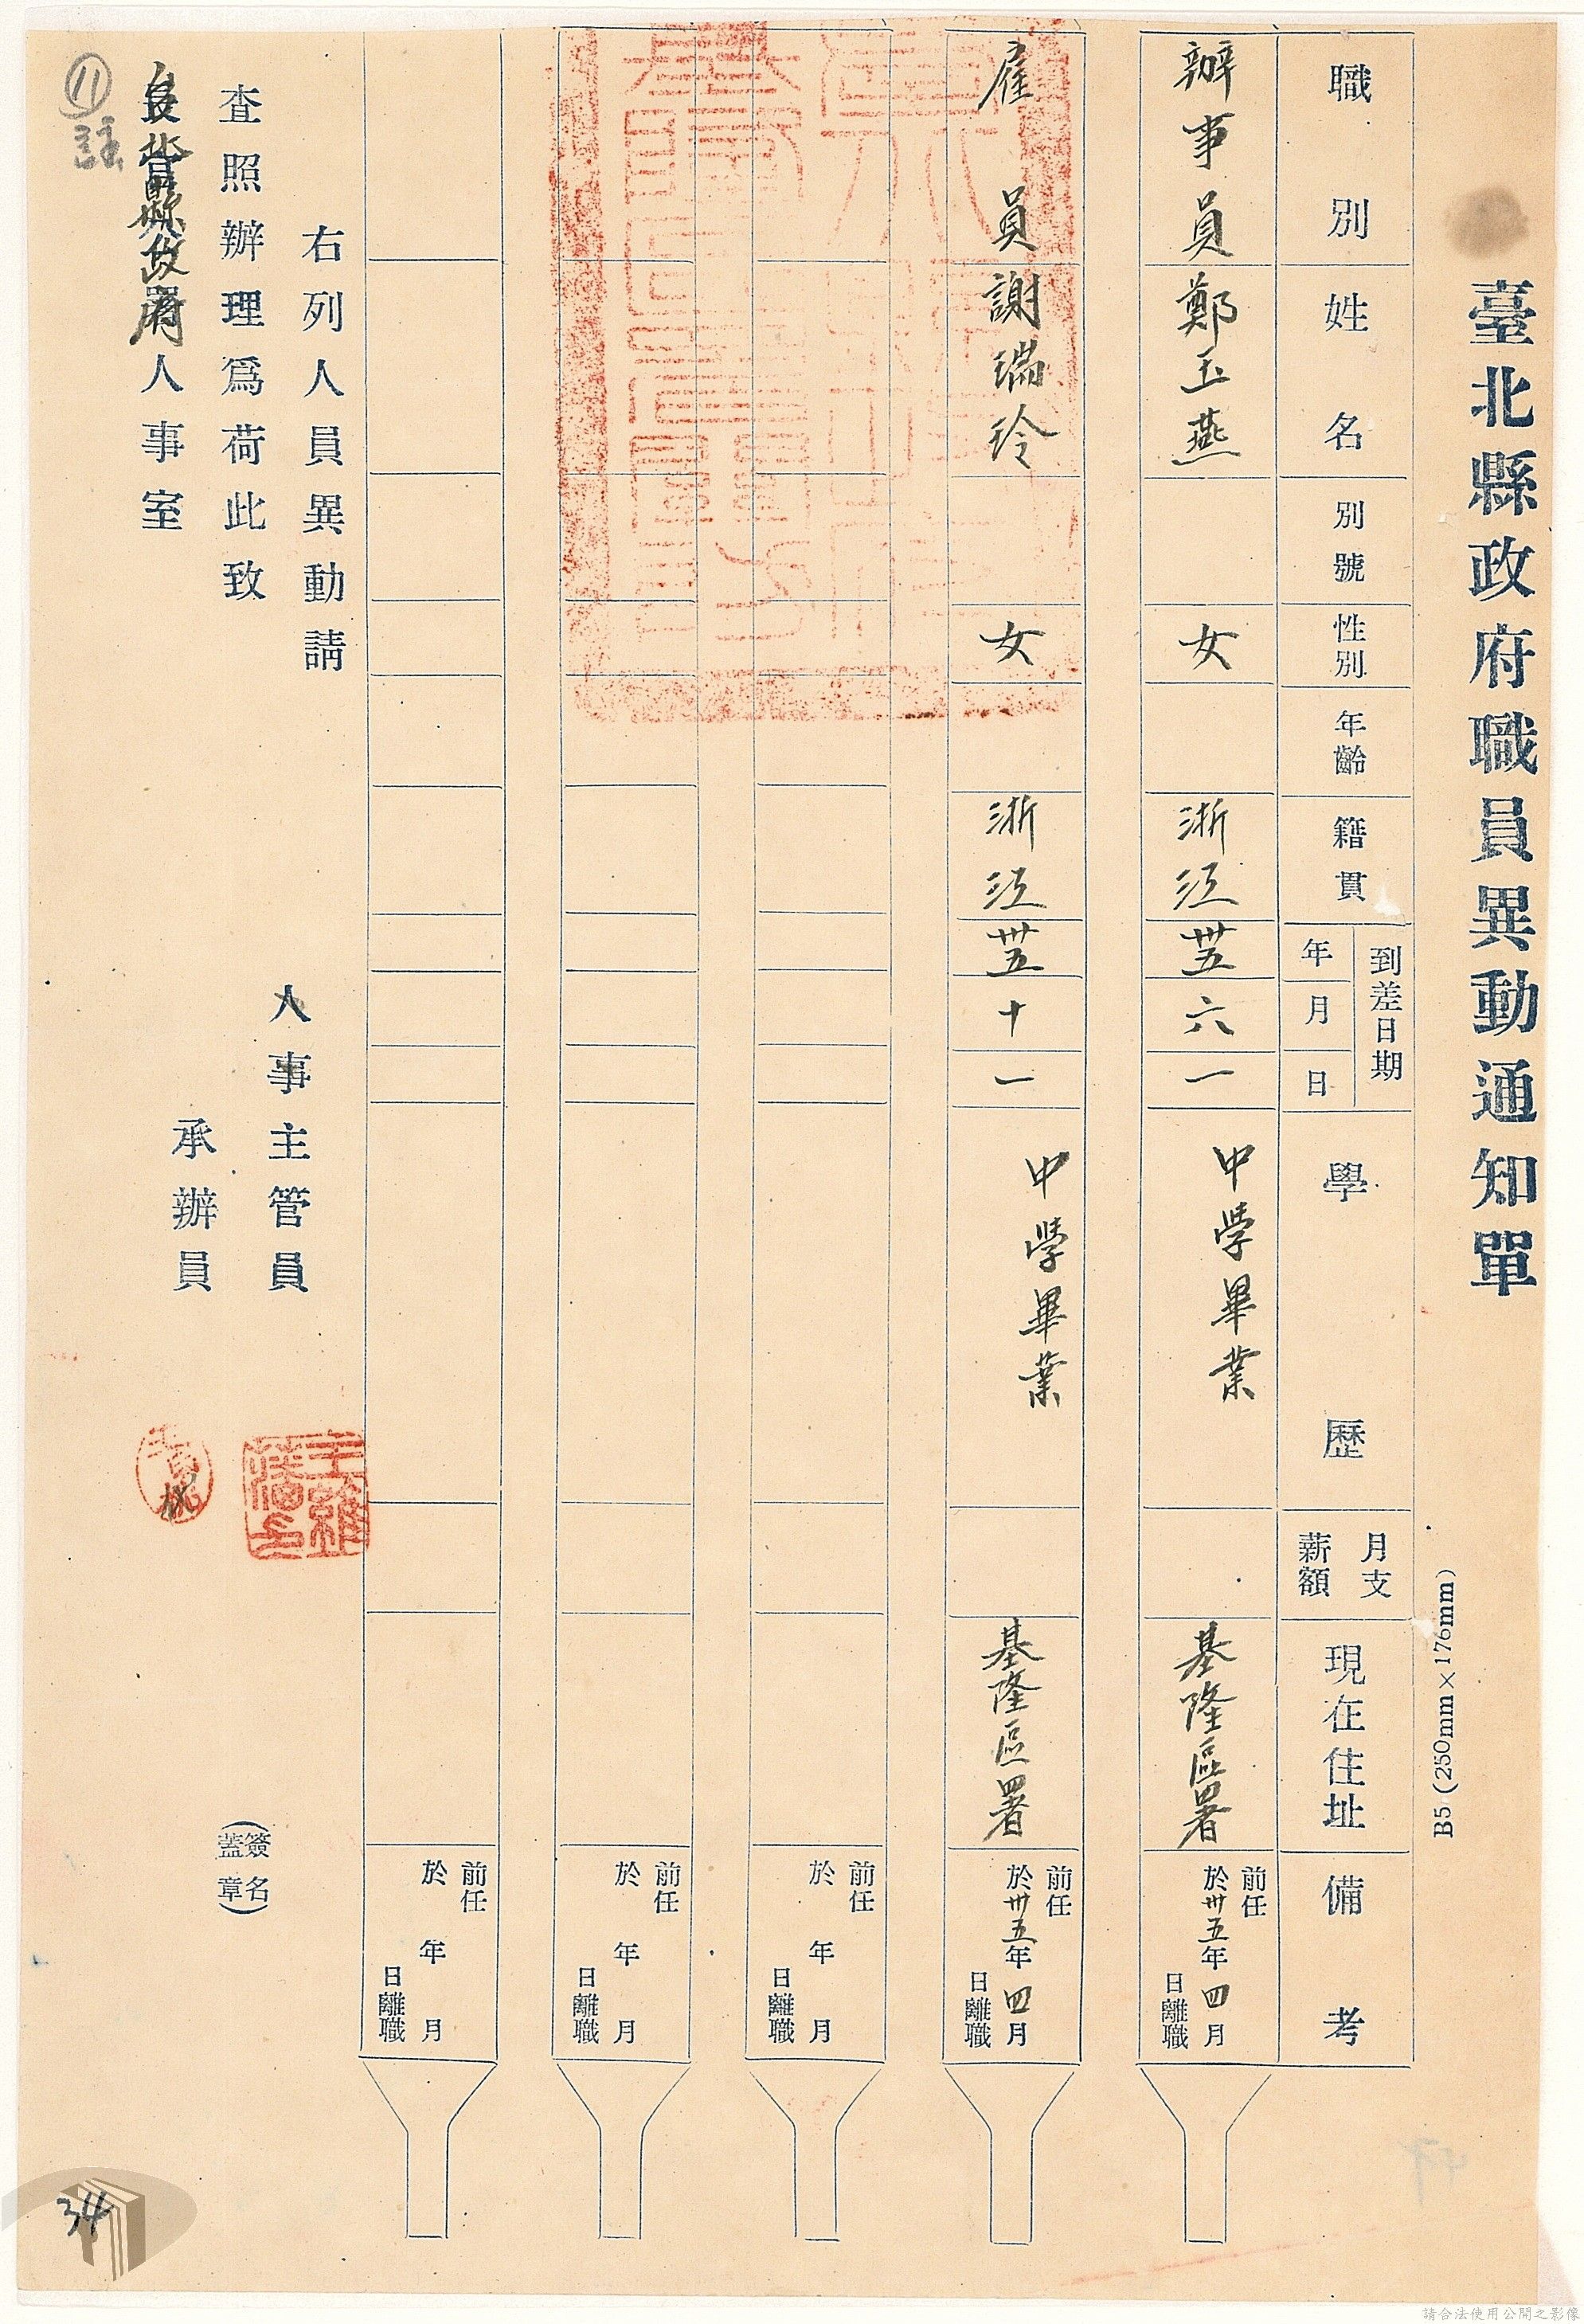 臺北縣政府職員異動通知單
B5 (250mm×176mm)
職別 姓名 別號 性別 年齡 籍貫 到差日期 年 月 日 學歷 月支薪額 現在住址 備考
辦事員 鄭玉燕 女 浙江 卅五 六 一 中學畢業 基隆區署 前任於卅五年四月 日離職
雇員 謝瑞玲 女 浙江 卅五 十 一 中學畢業 基隆區署 前任於卅五年四月 日離職
前任於 年 月 日離職
前任於 年 月 日離職
前任於 年 月 日離職
右列人員異動請
查照辦理爲荷此致
北縣政府人事室
人事主管員
承辦員
(簽名蓋章)
王維藩
11
註
34
請合法使用公開之影像